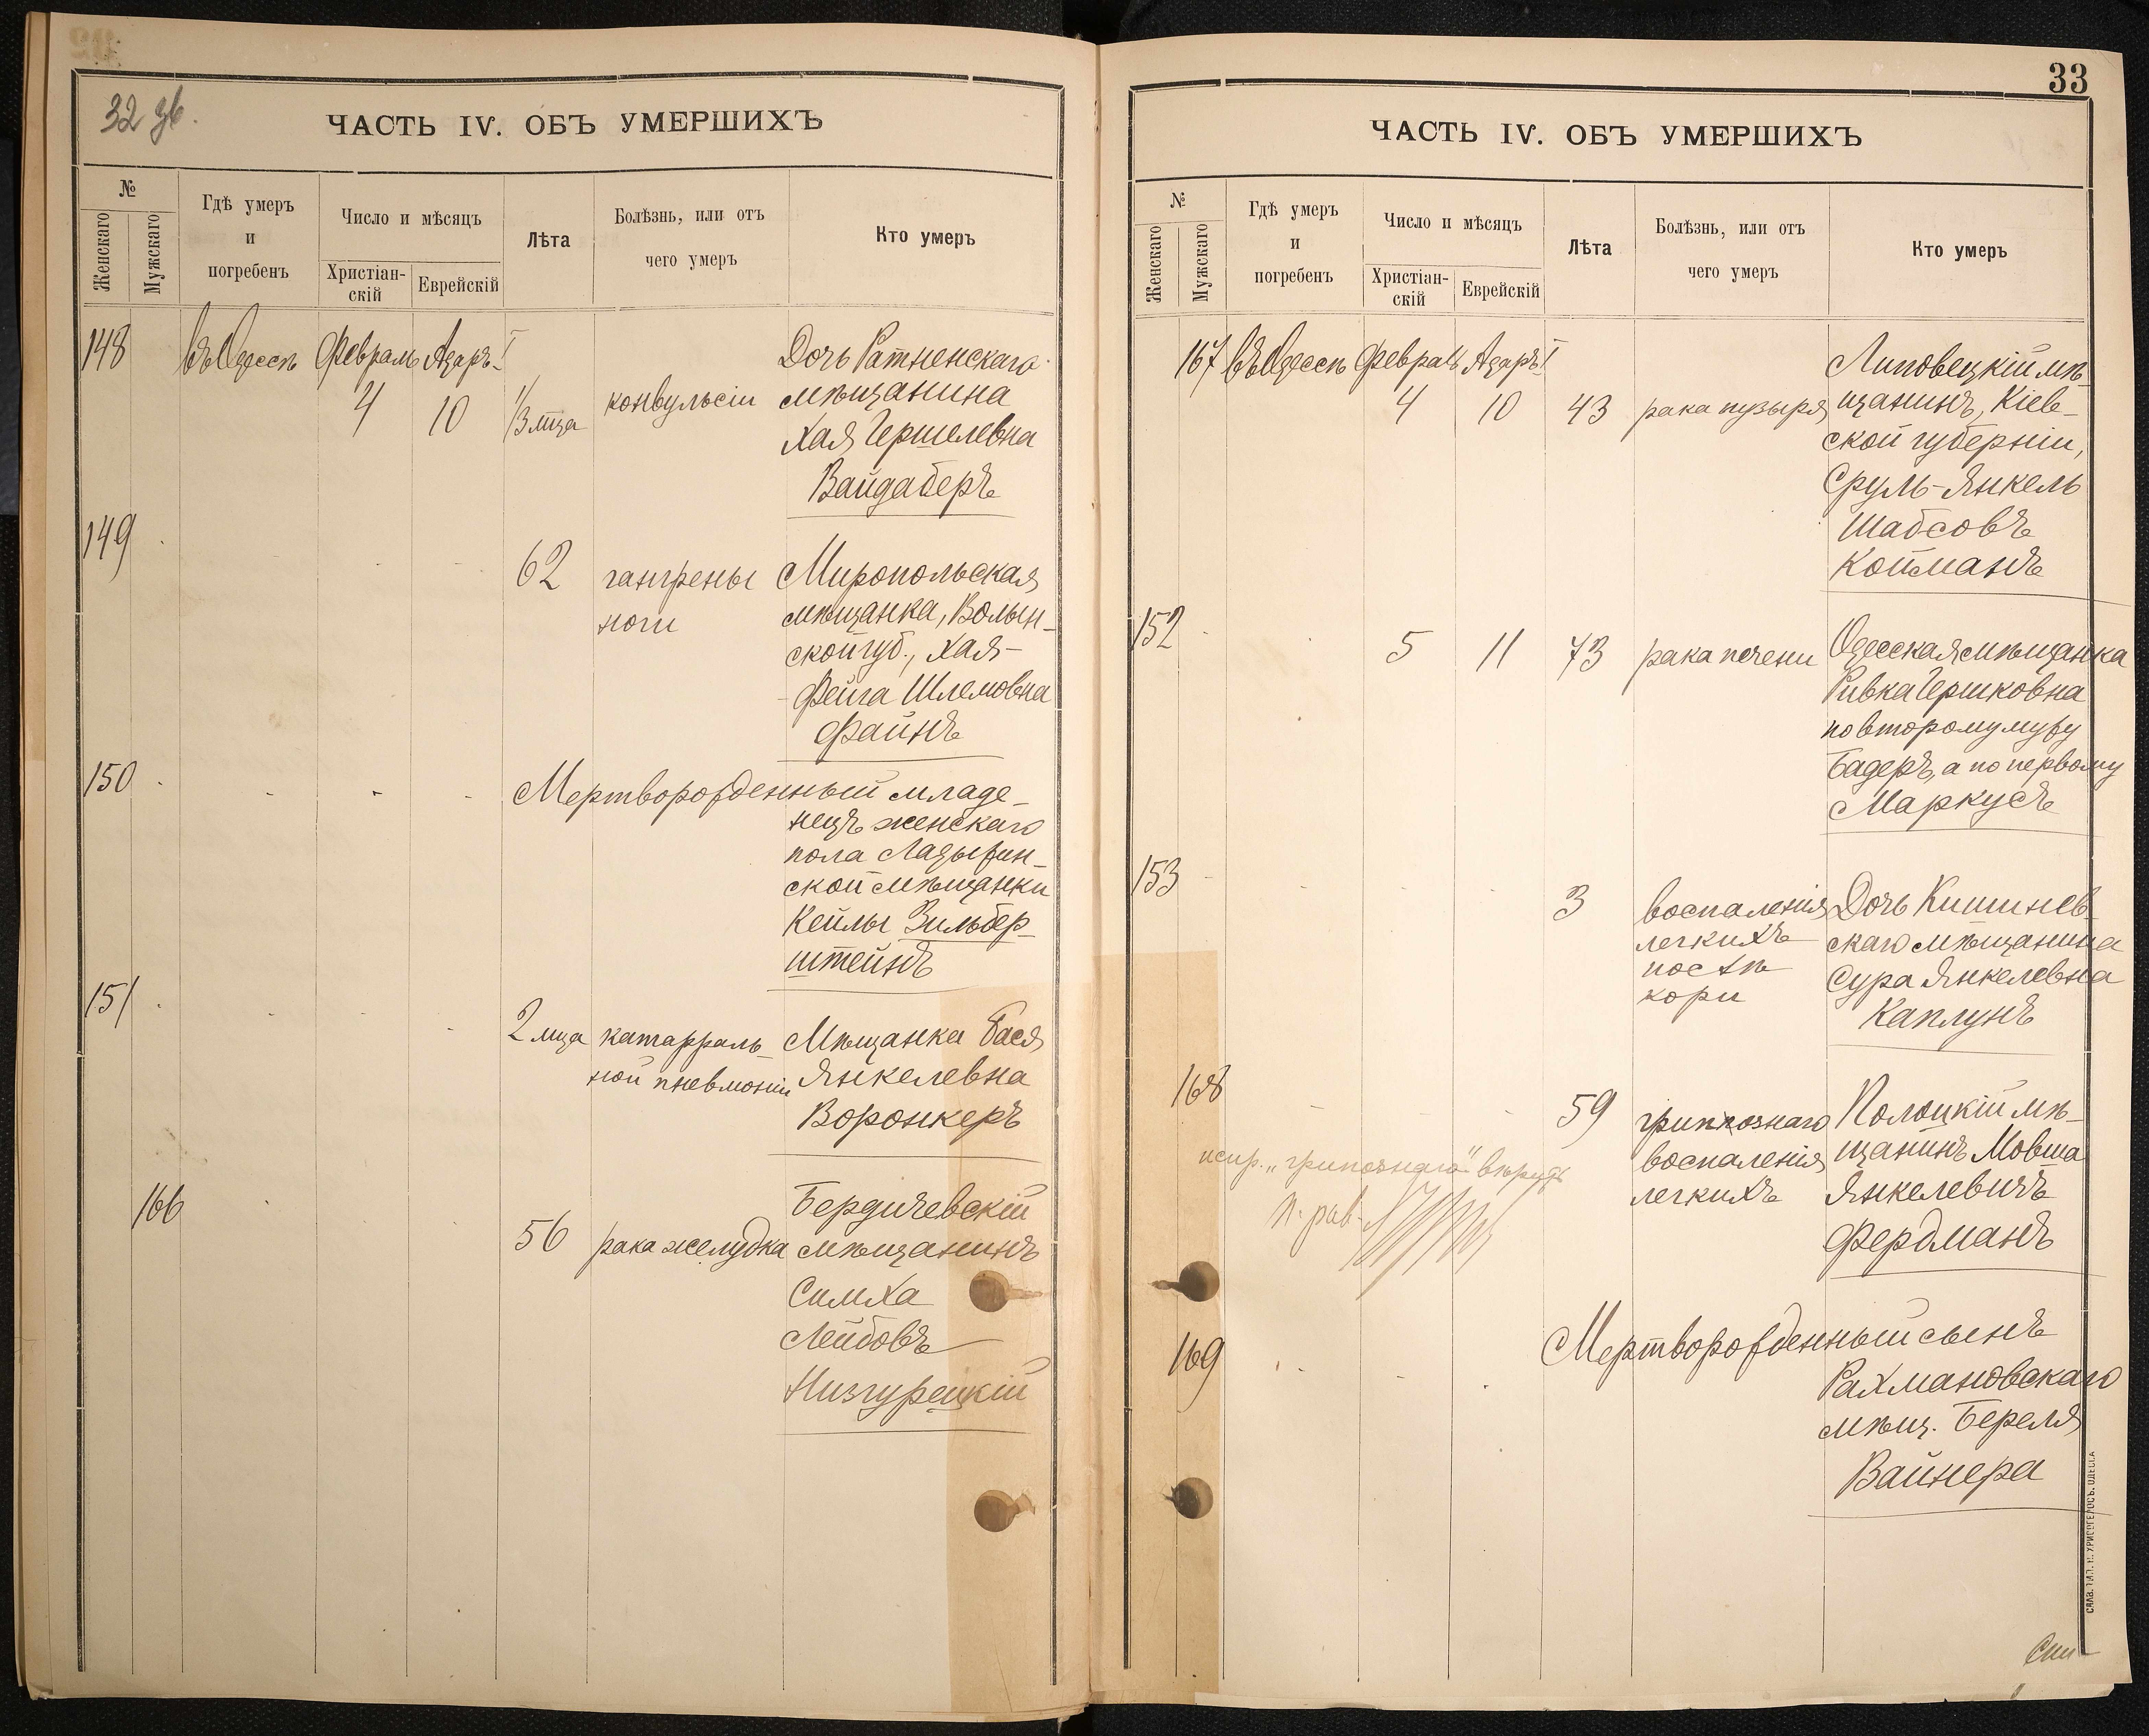 32 зв.
ЧАСТЬ IV. ОБЪ УМЕРШИХЪ
№
Женскаго
Мужскаго
Гдѣ умеръ
и
погребенъ
Число и мѣсяцъ
Христіан-
скій
Еврейскій
Лѣта
Болѣзнь, или отъ
чего умеръ
Кто умеръ
148 въ Одессѣ Февраль Адаръ I Дочь Ратненскаго
4 10 1/3 м̃ца конвульсіи мѣщанина
Хая Гершелевна
Вайдаберъ
149
62 гангрены Миропольская
ноги мѣщанка, Волын-
ской губ., Хая-
Фейга Шлемовна
Файнъ
150 Мертворожденный младе-
нецъ женскаго
пола Ладыжин-
ской мѣщанки
Кейлы Зильбер-
штейнъ
151
2 мца катарраль- Мѣщанка Бася
ной пневмоніи Янкелевна
Воронкеръ
166 Бердичевскій
56 рака желудка мѣщанинъ
Симха
Лейбовъ
Низгурецкій
33
ЧАСТЬ IV. ОБЪ УМЕРШИХЪ
№
Женскаго
Мужскаго
Гдѣ умеръ
и
погребенъ
Число и мѣсяцъ
Христіан-
скій
Еврейскій
Лѣта
Болѣзнь, или отъ
чего умеръ
Кто умеръ
167 въ Одессѣ Февраль Адаръ I Липовецкій мѣ-
4 10 43 рака пузыря щанинъ, Кіев-
ской губерніи,
Сруль-Янкель
Шабсовъ
Койманъ
152
5 11 73 рака печени Одесская мѣщанка
Ривка Гершковна
по второму мужу
Бадеръ, а по первому
Маркусъ
153
3 воспаленія Дочь Кишинев-
легкихъ скаго мѣщанина
послѣ Сура Янкелевна
кори Каплунъ
168
59 гриппознаго Полоцкій мѣ-
воспаленія щанинъ Мовша
легкихъ Янкелевичъ
Фердманъ
испр. „грипознаго" вѣрудъ
п. рав.
169 Мертворожденный сынъ
Рахмановскаго
мѣщ. Береля
Вайнера
СКЛАД. ТИП. Н. ХРИСОГЕЛОСЪ. ОДЕССА